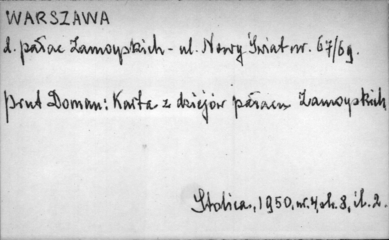 WARSZAWA
d. pałac Zamoyskich - ul. Nowy Świat nr. 67/69.
prut Doman: Karta z dziejów pałacu Zamoyskich
Stolica, 1950, nr. 4, st. 8, il. 2.